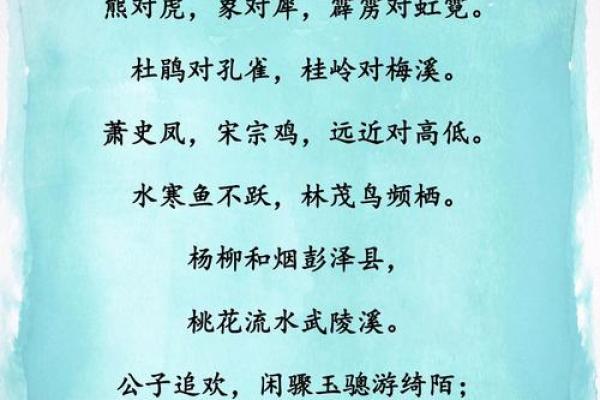 熊对虎，象对犀，霹雳对虹霓。
杜鹃对孔雀，桂岭对梅溪。
萧史凤，宋宗鸡，远近对高低。
水寒鱼不跃，林茂鸟频栖。
杨柳和烟彭泽县，
桃花流水武陵溪。
公子追欢，闲骤玉骢游绮陌；